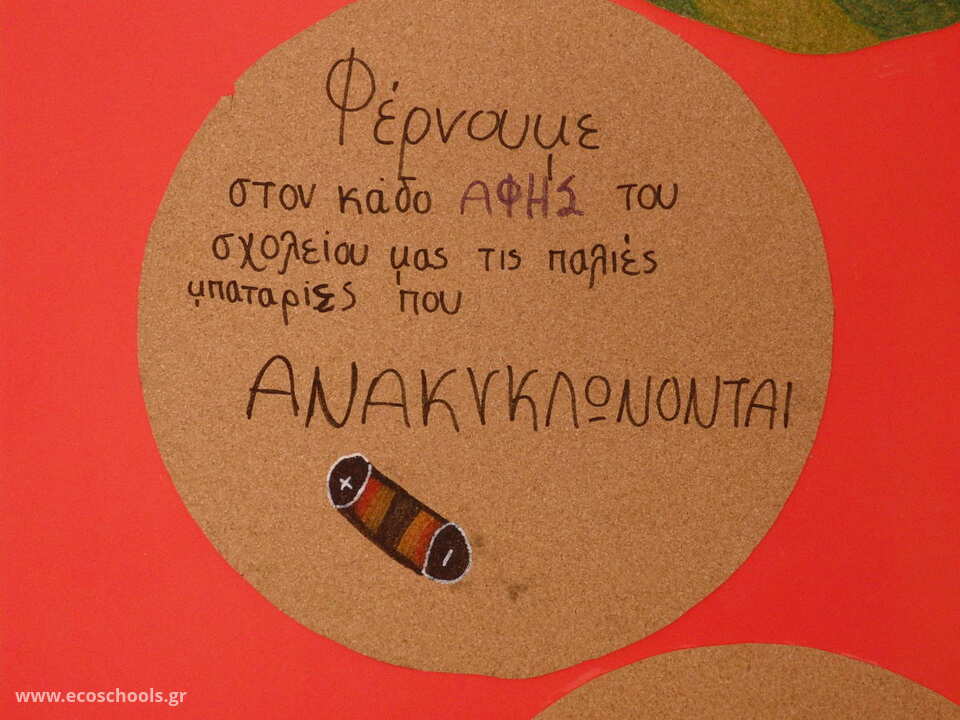 Φέρνουμε
στον κάδο ΑΦΗΣ του
σχολείου μας τις παλιές
μπαταρίες που
ΑΝΑΚΥΚΛΩΝΟΝΤΑΙ
+
-
www.ecoschools.gr